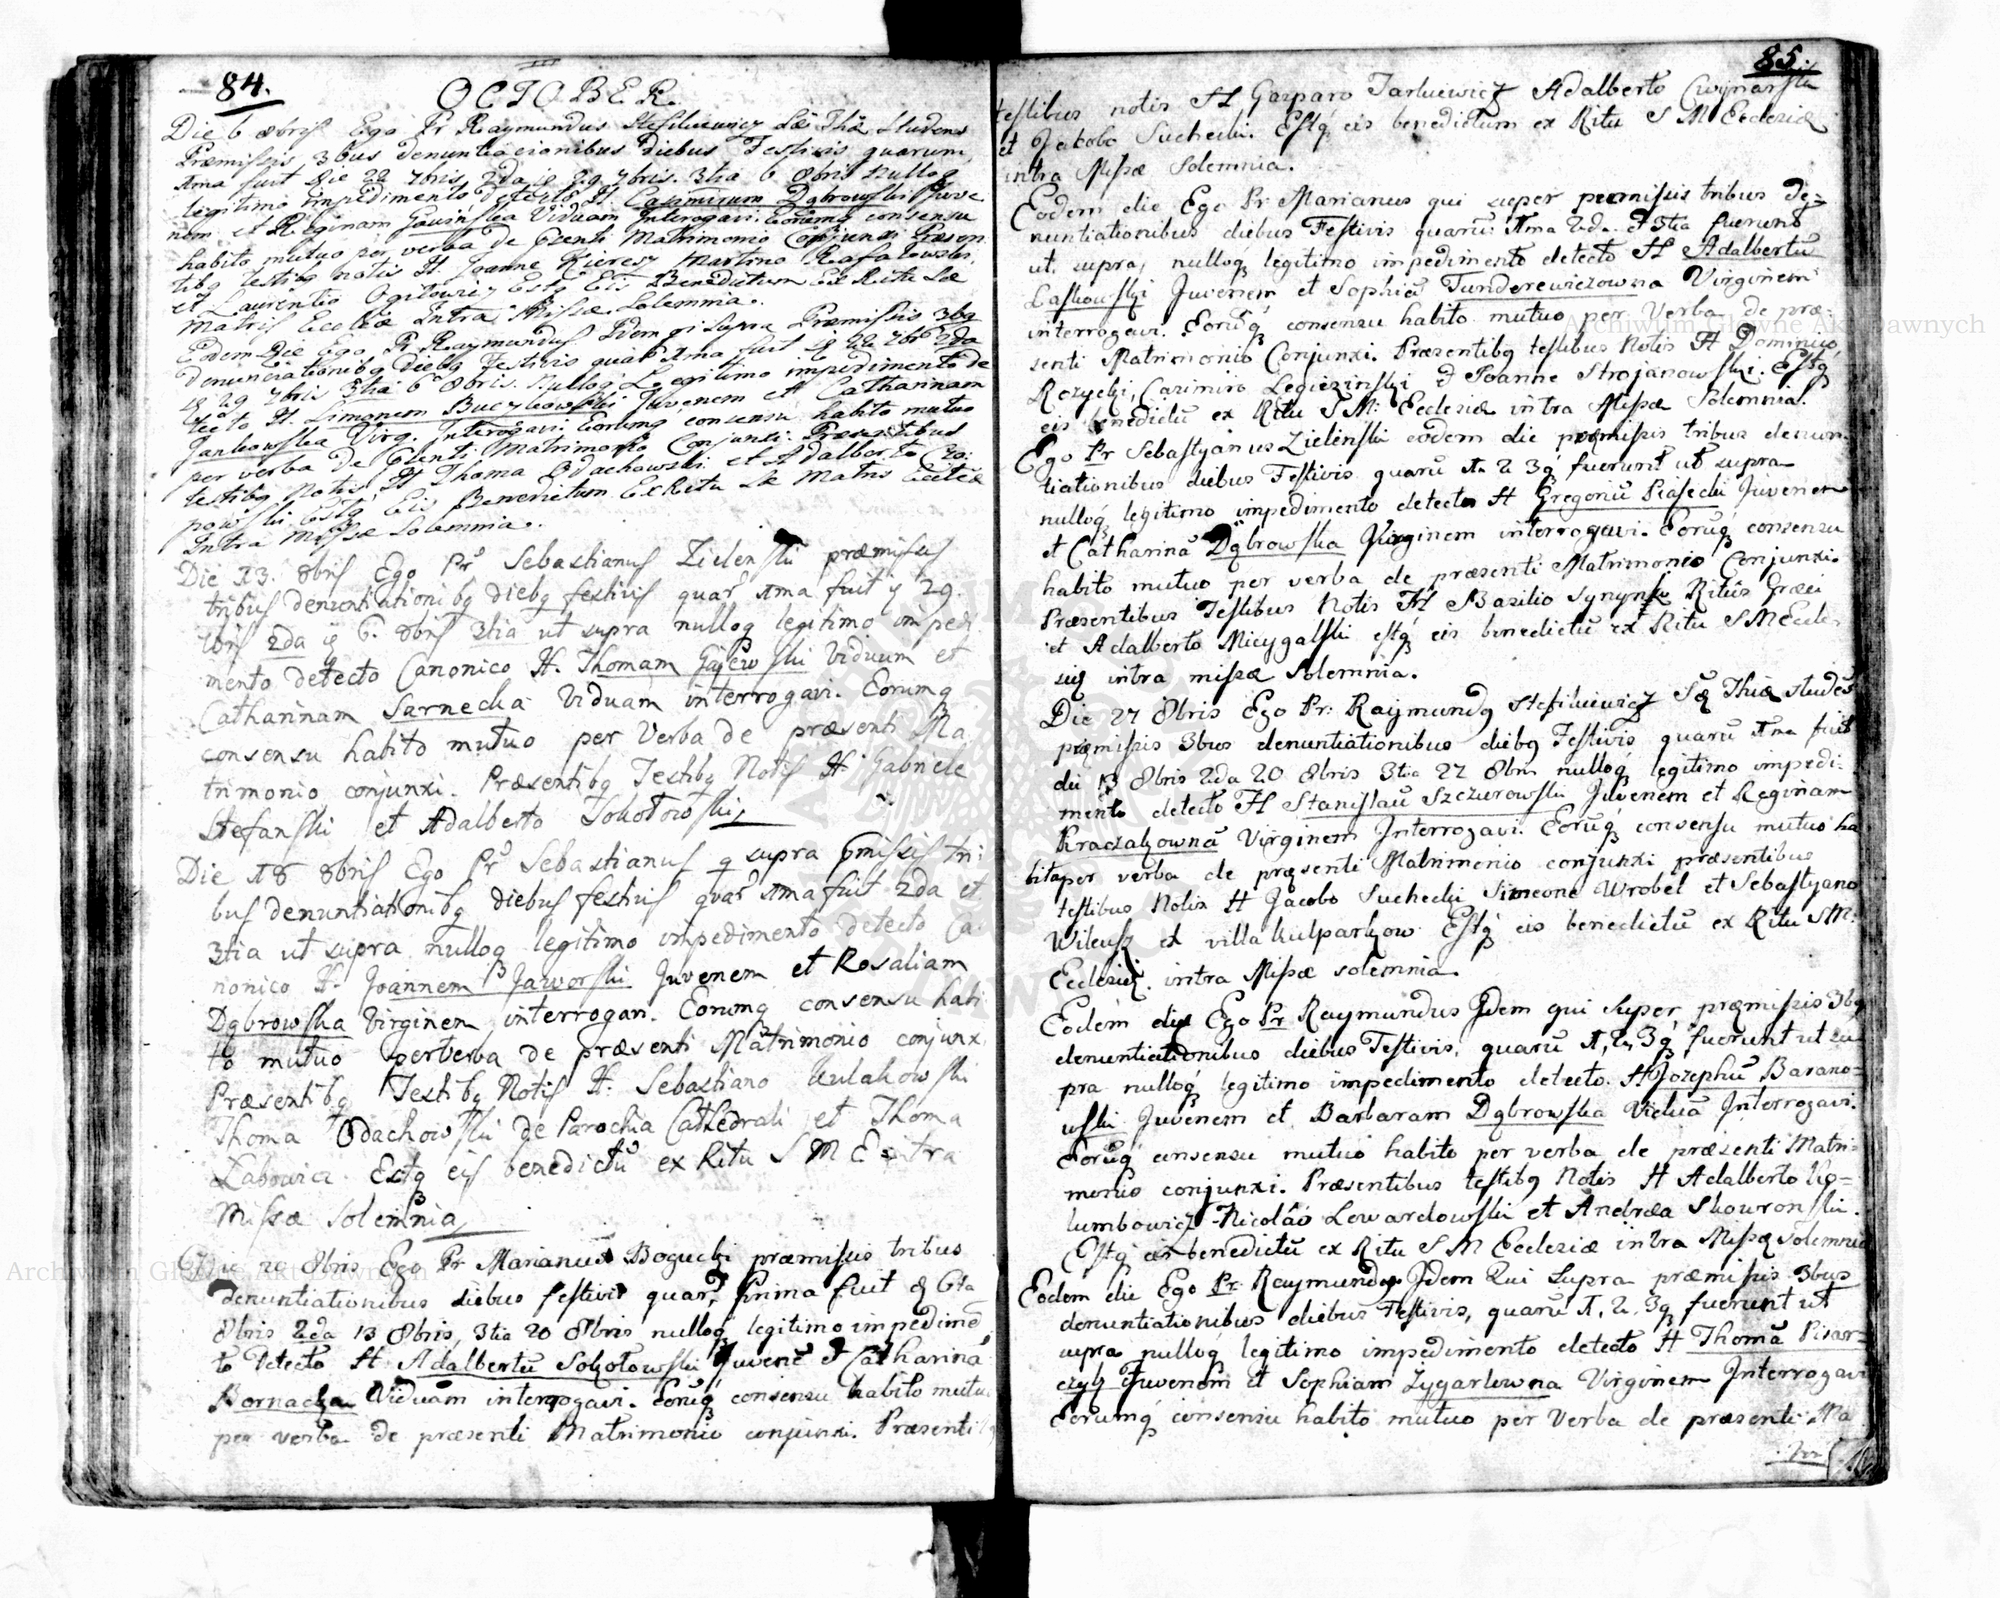 84.
OCTOBER.
Die 6 8bris Ego Pr Raymundus Stefkiewicz Sæ Thæ Studens
Præmissis 3bus denuntiacionibus diebus Festivis quarum
1ma fuit die 22 7bris 2da 29 7bris. 3tia 6 8bris Nulloq
legitimo impedimento detecto H. Casimirum Dąbrowski Juve
nem et Reginam Viduam Interrogavi. Eorumq consensu
habito mutuo per verba de Psenti Matrimonio Conjunxi Præsen
tibq testibq notis H. Joanne Martino Rafałowski,
et Laurentio Estq Eis Benedictum Ex Ritu Sæ
Matris Ecclæ Intra Missæ Solemnia.
Eodem Die Ego Pr Raymundus Idem qi Supra Præmissis 3bq
denunciationibq Diebq Festivis quar 1ma fuit 22 7br 2da
29 7bris 3tia 6 8bris. Nulloq Legitimo impedimento de
tecto H. Simonem Buczkowski Juvenem et Catharinam
Jankowska Virg. Interogavi. Eorumq consensu habito mutuo
per verba de Psenti Matrimonio Conjunxi. Præsentibus
testibq Notis H Thoma Odachowski et Adalberto Cza:
powski. Estq Eis Benedictum Ex Ritu Sæ Matris Ecclæ
Intra Missæ Solemnia.
Die 13. 8bris Ego Pr Sebastianus Zielenski præmissis
tribus denuntiationibq diebq festivis quar 1ma fuit 29.
7bris 2da 6. 8bris 3tia ut supra nulloq legitimo impedi
mento detecto Canonico H. Thomam Gajewski Viduum et
Catharinam Sarnecka Viduam interrogavi. Eorumq
consensu habito mutuo per Verba de præsenti Ma
trimonio conjunxi. Præsentibq Testibq Notis H Gabriele
Stefanski et Adalberto Sokołowski,
Die 18 8bris Ego Pr Sebastianus q supra Pmissis tri:
bus denuntiationibq diebus festivis quar 1ma fuit 2da et
3tia ut supra nulloq legitimo impedimento detecto Ca
nonico H. Joannem Jaworski Juvenem et Rosaliam
Dąbrowska Virginem interrogavi. Eorumq consensu habi
to mutuo per verba de præsenti Matrimonio conjunx.
Præsentibq Testibq Notis H. Sebastiano Kulakowski
Thoma Odachowski de Parochia Cathedrali et Thoma
Labowicz. Estq eis benedictū ex Ritu S M E intra
Missæ Solemnia,
Die 20 8bris Ego Pr Marianus Bogucki præmissis tribus
denuntiationibus diebus festivis quar, prima fuit 6ta
8bris 2da 13 8bris, 3tia 20 8bris nulloq legitimo impedimē
to detecto H Adalbertū Sokołowski Juvenē et Catharinā
Bornacka Viduam interrogavi. Eorūq consensu habito mutu
per verba de præsenti Matrimonio conjunxi. Præsenti
85.
testibus notis H, Gasparo Tarkiewicz Adalberto Cwynarski
et Jakobo Suchecki. Estq eis benedictum ex Ritu S M Ecclesiæ
intra Missæ Solemnia.
Eodem die Ego Pr Marianus qui super premissis tribus de=
nuntiationibus diebus Festivis quarū 1ma 2da et 3tia fuerunt
ut supra, nulloq legitimo impedimento detecto H Adalbertū
Laskowski Juvenem et Sophiā Tunderewiczowna Virginem
interrogavi. Eorūq consensu habito mutuo per Verba de præ-
senti Matrimonio Conjunxi. Præsentibq testibus Notis H Dominico
Rozycki, Casimiro Legiezinski et Joanne Strojanowski. Estq
eis benedictū ex Ritu S M: Ecclesiæ intra Missæ Solemnia.
Ego Pr Sebastyanus Zielenski eodem die præmissis tribus denun-
tiationibus diebus Festivis quarū 1a 2 3q fuerunt ut supra
nulloq legitimo impedimento detecto H Gregoriū Piasecki Juvenem
et Catharinā Dąbrowska Virginem interrogavi. Eorūq consensu
habito mutuo per verba de præsenti Matrimonio Conjunxi.
Præsentibus Testibus Notis H Basilio Synynki Ritus Græci
et Adalberto Micygalski estq eis benedictū ex Ritu S M Eccle-
siæ intra missæ Solemnia.
Die 27 8bris Ego Pr: Raymundq Stefkiewicz Sæ Thiæ studēs
præmissis 3bus denuntiationibus diebq Festivis quarū 1ma fuit
die 13 8bris 2da 20 8bris 3tia 27 8bris nulloq legitimo impedi-
mento detecto H Stanislaū Szczurowski Juvenem et Reginam
Kraczakowna Virginem Interrogavi. Eorūq consensu mutuo ha
bito per verba de præsenti Matrimonio conjunxi præsentibus
testibus Notis H Jacobo Suchecki Simeone Wrobel et Sebastyano
Wilcusz ex villa Kulparkow. Estq eis benedictū ex Ritu S M:
Ecclesiæ. intra Missæ solemnia.
Eodem die Ego Pr Raymundus Idem qui super præmissis 3bq
denuntiationibus diebus Festivis, quarū 1, 2, 3q fuerunt ut su
pra nulloq legitimo impedimento detecto. H Jozephū Barano=
wski Juvenem et Barbaram Dąbrowska Viduā Interrogavi.
Eorūq consensu mutuo habito per verba de præsenti Matri-
monio conjunxi. Præsentibus testibq Notis H Adalberto Ko=
lumbowicz Nicoláo Lewardowski et Andræa Skowronski.
Estq eis benedictū ex Ritu S M Ecclesiæ intra Missæ Solemnia
Eodem die Ego Pr. Raymundq Idem Qui supra præmissis 3bus
denuntiationibus diebus Festivis, quarū 1, 2, 3q fuerunt ut
supra nulloq legitimo impedimento detecto H Thomā Pisar=
czyk Juvenem et Sophiam Zygartowna Virginem Interrogavi
Eorumq consensu habito mutuo per Verba de præsenti Ma